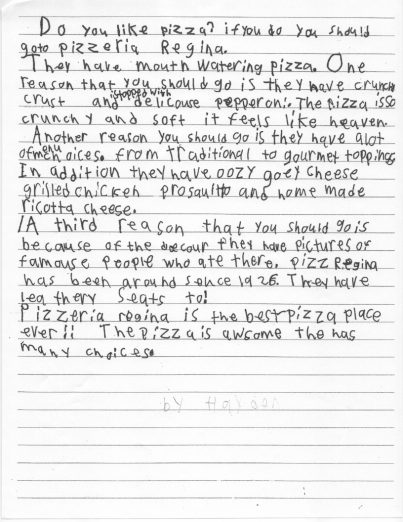 Do you like pizza? if you do you should
goto pizzeria Regina.
They have mouth watering pizza. One
reason that you should go is they have crunchy
crust and is topped with delicouse pepperoni. The pizza is so
crunchy and soft it feels like heaven.
Another reason you should go is they have alot
of menu oices. from traditional to gourmet toppings
In addition they have oozy goey cheese
grilled chicken prosquitto and home made
ricotta cheese.
A third reason that you should go is
because of the they have pictures of
famouse people who ate there. pizz Regina
has been around sence 1926. They have
leathery seats to!
Pizzeria regina is the best pizza place
ever!! The pizza is awsome the has
many choices.
by